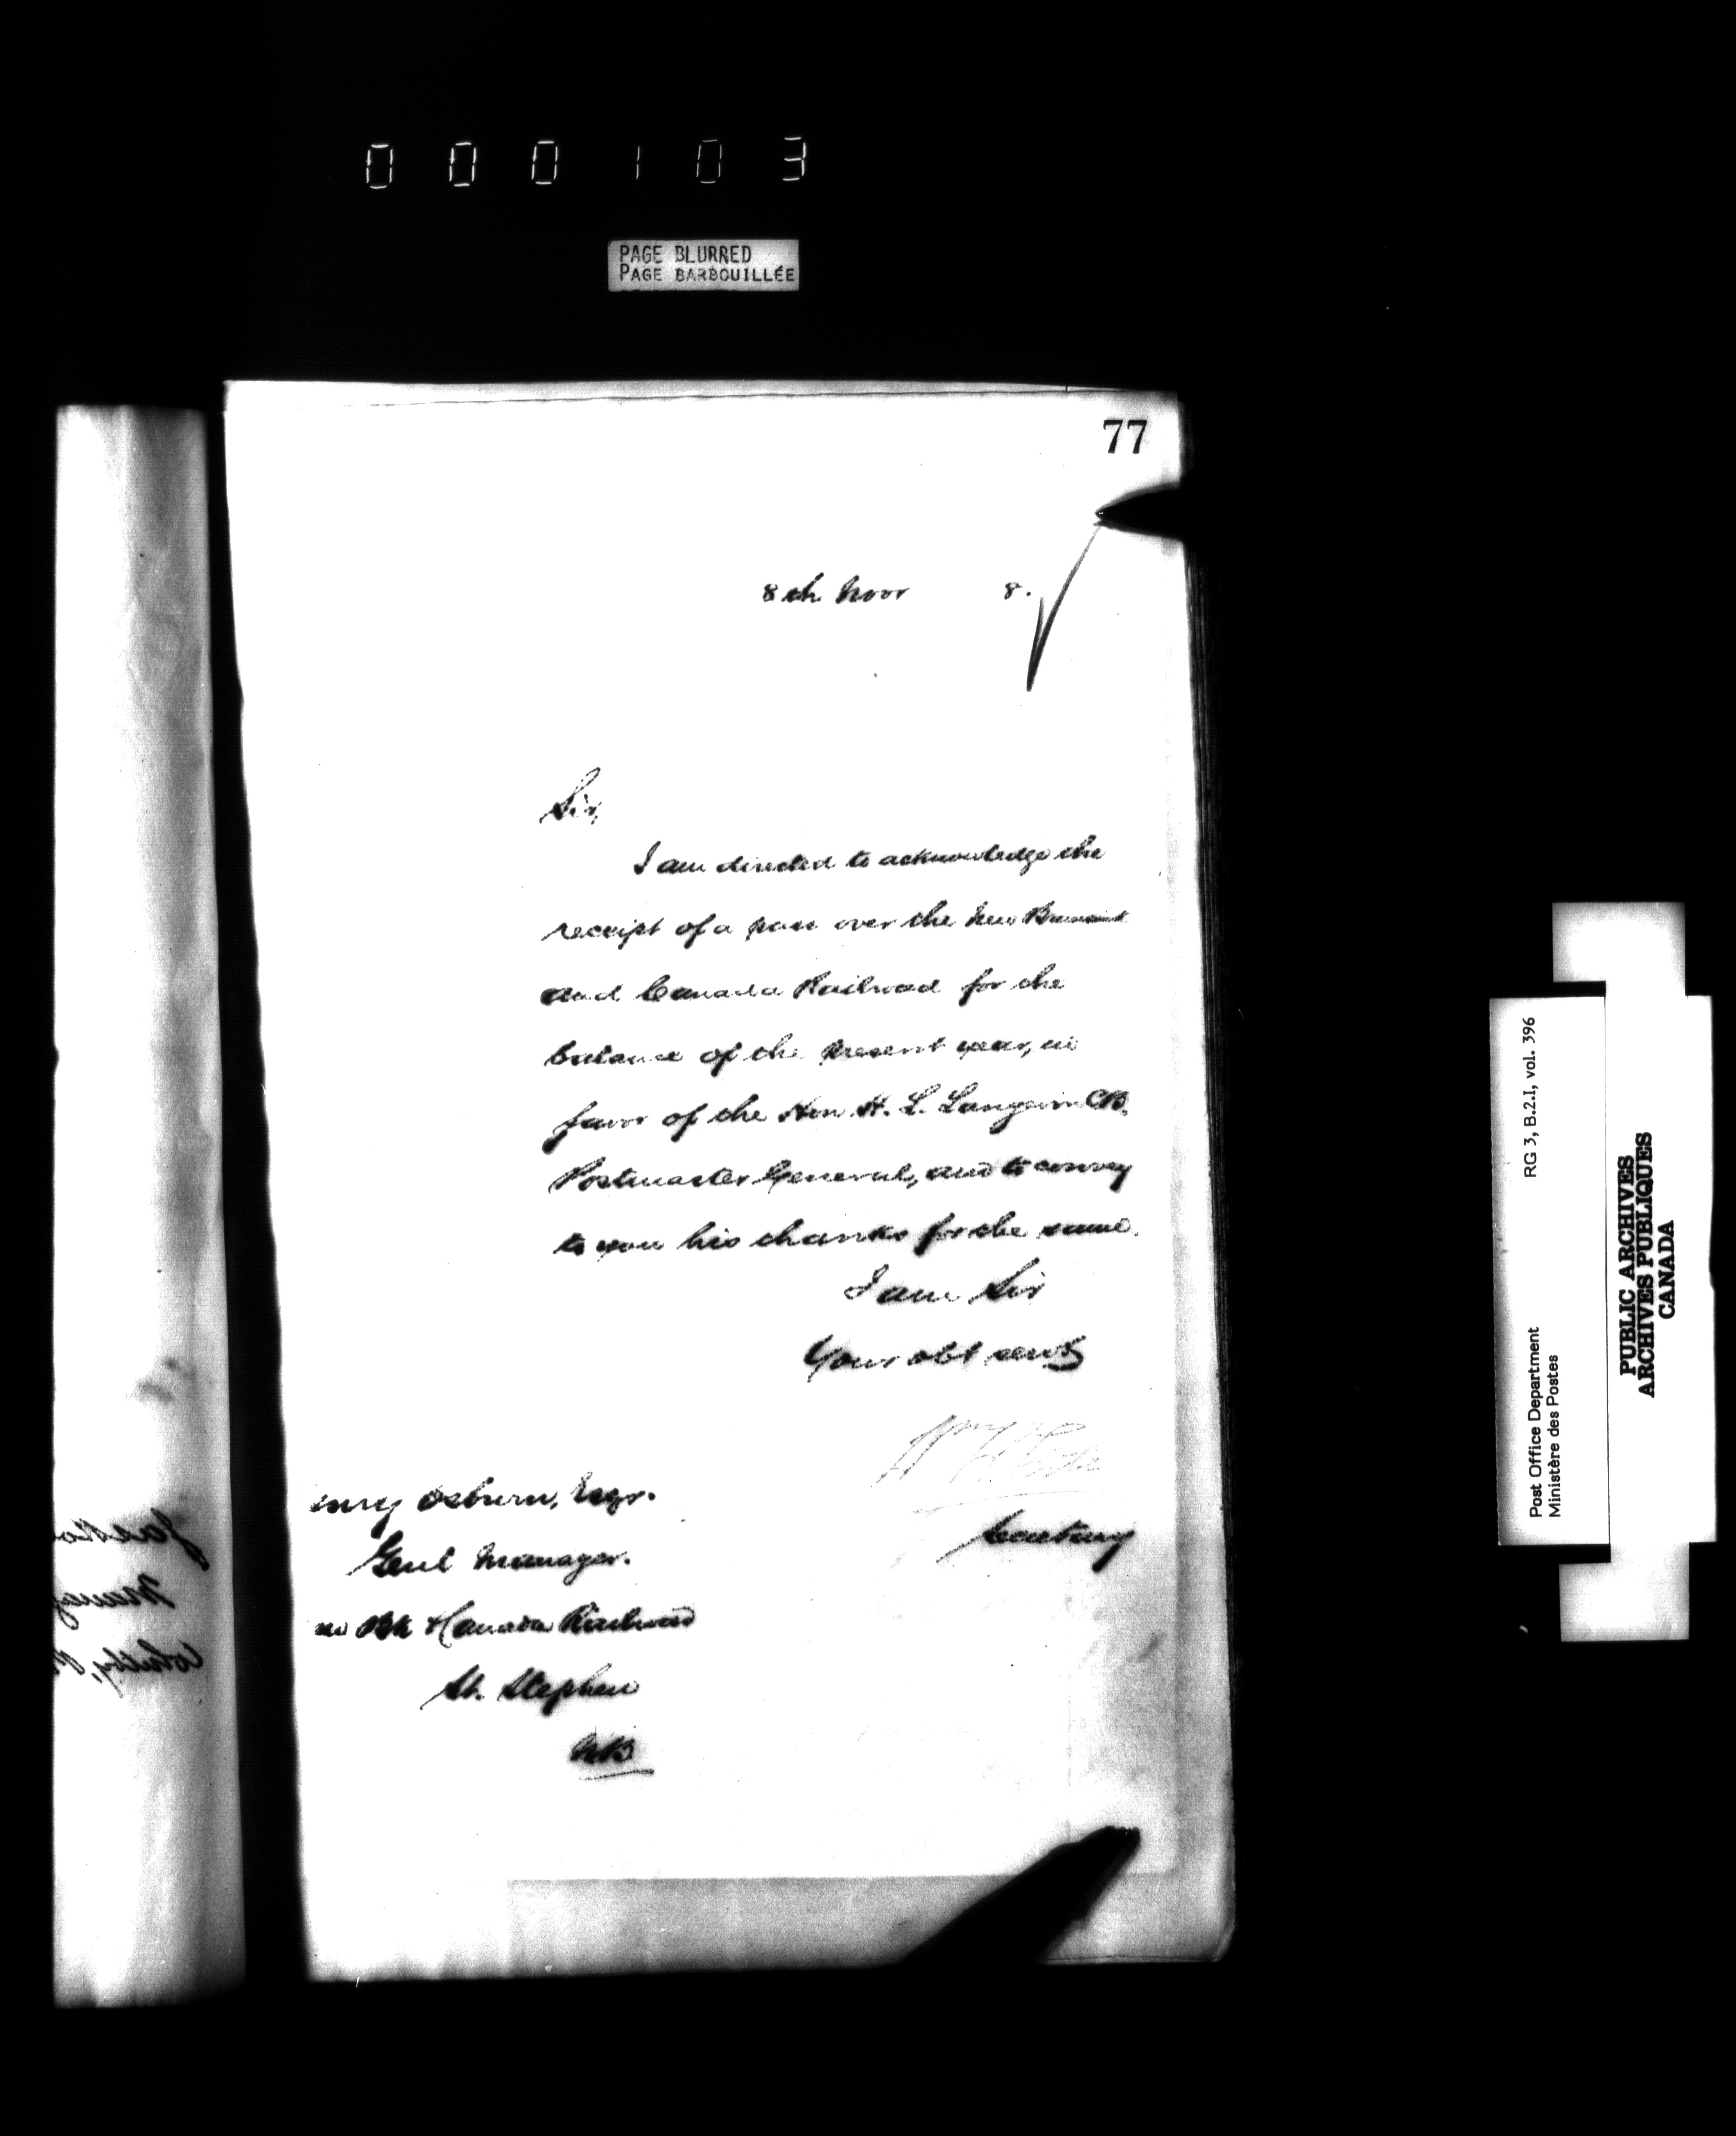 000103
PAGE BLURRED
PAGE BARBOUILLÉE
77
8th Novr 8.
Sir,
I am directed to acknowledge the
receipt of a pass over the New Brunswick
and Canada Railroad for the
balance of the present year, in
favor of the Hon H. L. Langevin CB.
Postmaster General, and to convey
to you his thanks for the same.
I am Sir
Your obt servt
Secretary
enry Osburn, Esqr.
Genl Manager.
w Bk & Canada Railroad
St. Stephen
NB
RG 3, B.2.I, vol. 396
Post Office Department
Ministère des Postes
PUBLIC ARCHIVES
ARCHIVES PUBLIQUES
CANADA